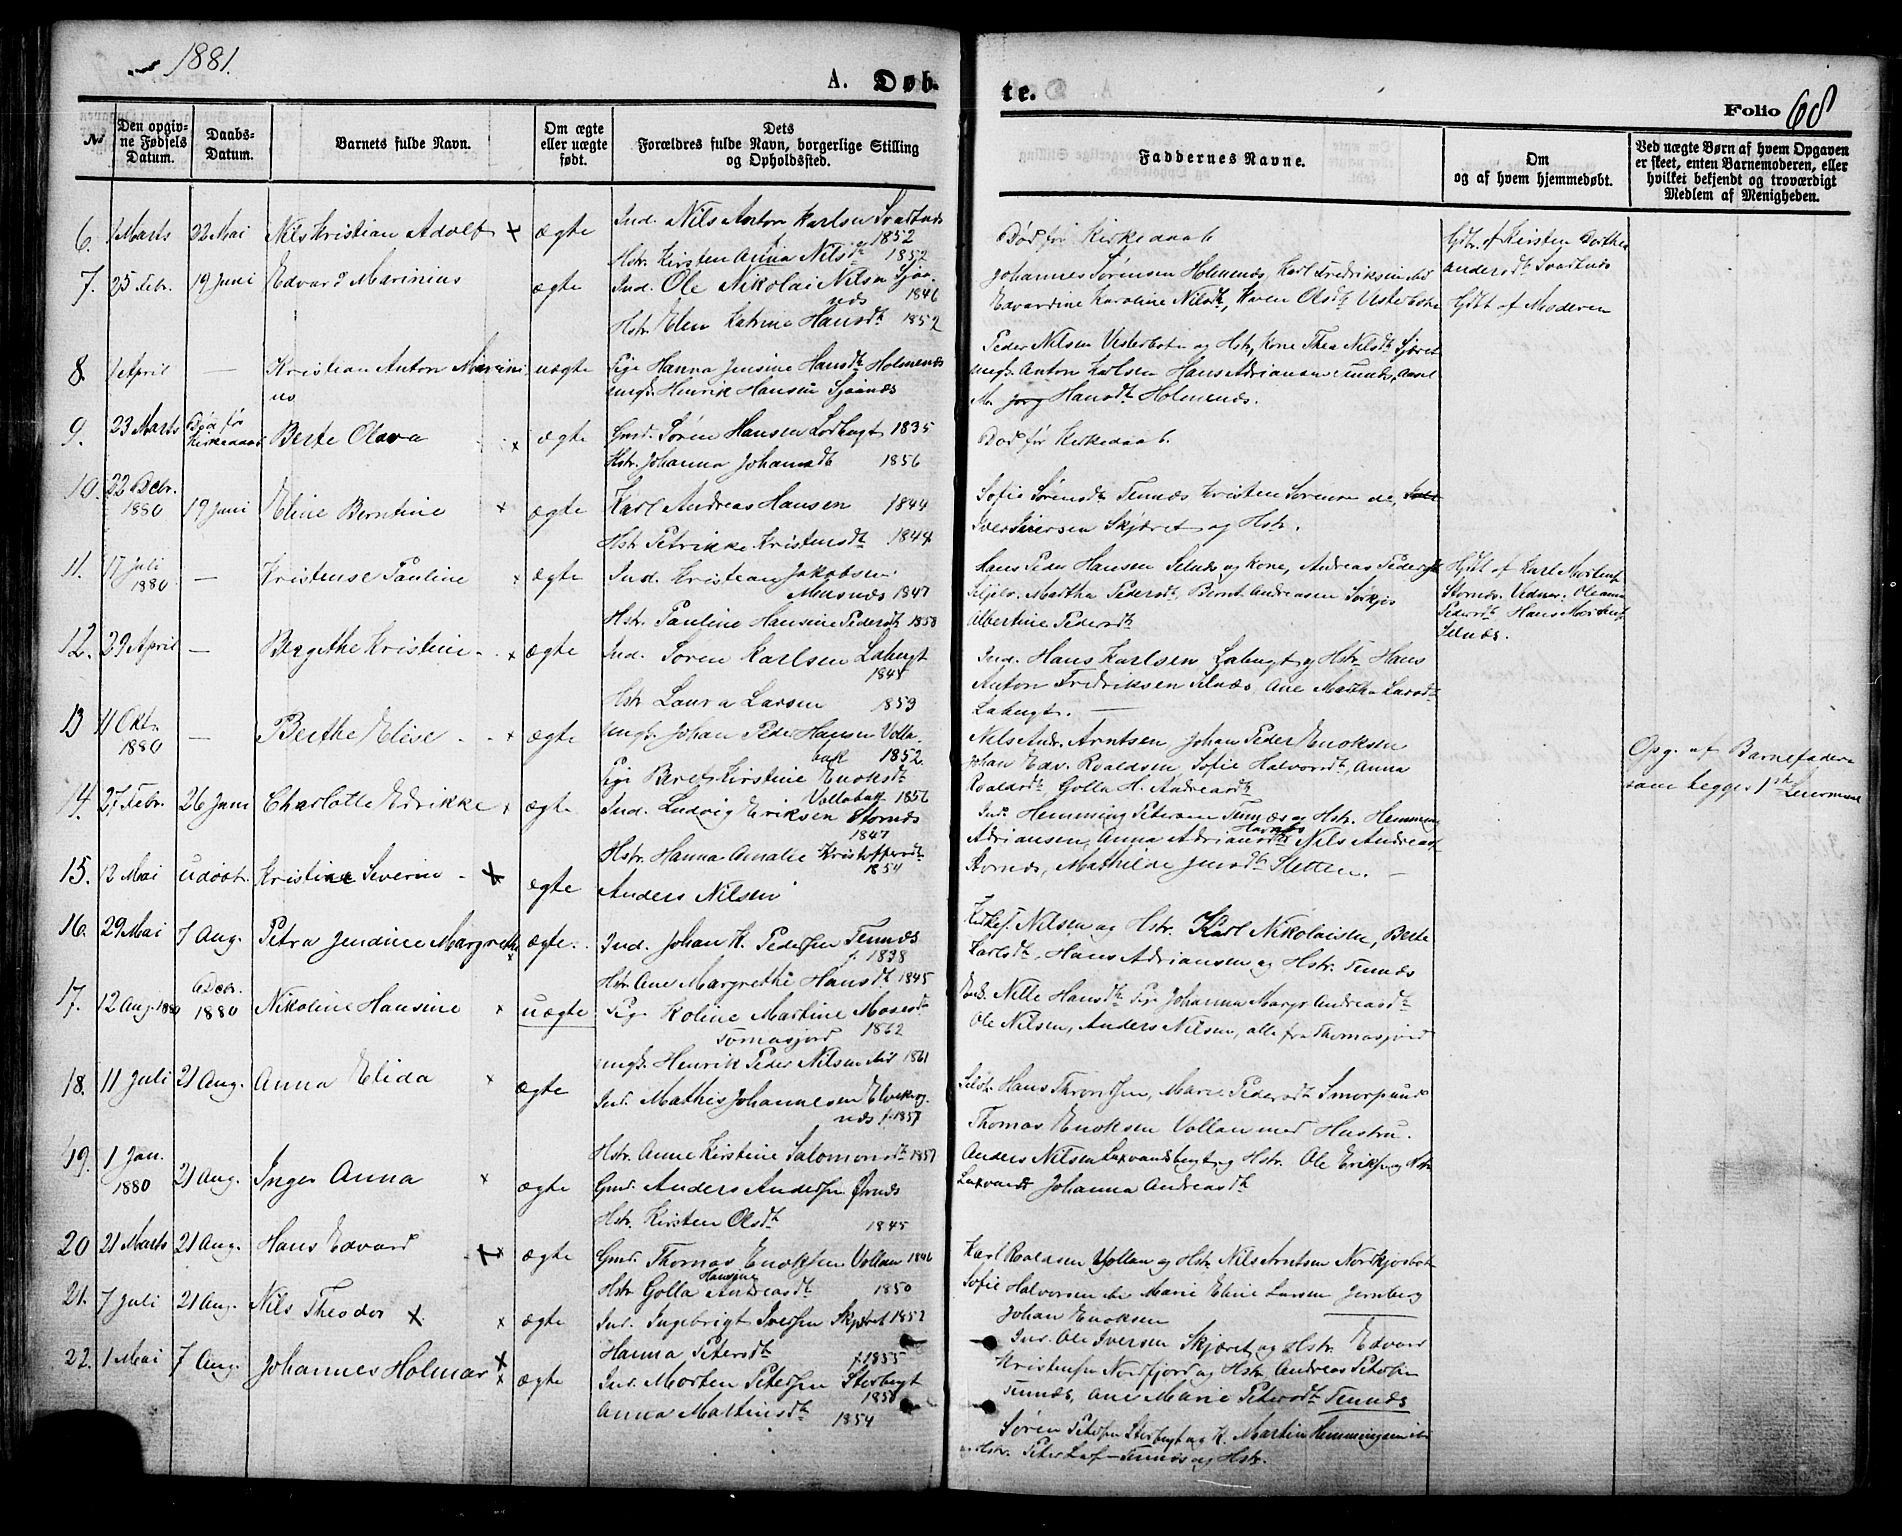 1881.
A. Døb-
te.
Folio 68
No
Den opgiv-
ne Fødsels
Datum.
Daabs-
Datum.
Barnets fulde Navn.
Om ægte
eller uægte
født.
Dets
Forældres fulde Navn, borgerlige Stilling
og Opholdssted.
Faddernes Navne.
Om
og af hvem hjemmedøbt.
Ved uægte Børn af hvem Opgaven
er skeet, enten Barnemoderen, eller
hvilket bekjendt og troværdigt
Medlem af Menigheden.
6. 1 Marts 22 Mai Nils Kristian Adolf x ægte Ind. Nils Anton Karlsen Svartnæs
1852
Hstr. Kirsten Anna Nilsdt 1852
Død før Kirkedaab
Hdbt. af Kirsten Dorthea
Andersdt Svartnæs
7. 25 Febr. 19 Juni Edvard Marinius ægte Ind. Ole Nikolai Nilsen Sjøa-
næs 1846
Hstr. Elen Katrine Hansdt 1852
Johannes Sørensen Holmenæs, Karl Fredriksen ibid
Edvardine Karoline Nilsdt, Karen Olsdt Vesterbotn
Hjdbt af Moderen
8. 1 April — Kristian Anton Marini
us
uægte Pige Hanna Jensine Hansdt Holmenæs
Ungk. Henrik Hansen Sjøanæs
Peder Nilsen Vesterbotn og Hstr, Kone Thea Nilsdt Skjæret
Ungk. Anton Karlsen Hans Adriansen Tennæs,
Hansdt Holmenæs.
9. 23 Marts Død før
Kirkedaab Berte Olava x ægte Gmd. Søren Hansen Lodbugt 1835
Hstr. Johanna Johansdt 1856
Død før Kirkedaab.
10. 22 Decbr.
1880 19 Juni Eline Berntine x ægte Karl Andreas Hansen 1844
Hstr Petrikke Kristensdt 1844
Sofie Sørensdt Tennæs Kristen Sørensen do,
Iver Iversen Skjæret og Hstr.
11. 17 Juli
1880 — Kristense Pauline x ægte Ind. Kristian Jakobsen
1847
Hstr. Pauline Hansine Pedersdt 1850
Hans Peder Hansen Selnæs og Kone, Andreas Pedersen
Martha Pedersdt, Bernt Andreasen Sørkjos
Albertine Pedersdt
Hjdt af Karl Mortens.
Stornæs. Vidner. Oleanna
Pedersdt Hans Mortens.
Selnæs.
12. 29 April — Bergithe Kristine x ægte Ind. Søren Karlsen Labugt
1845
Hstr Laura Larsen 1859
Ind. Hans Karlsen Labugt og Hstr Hans
Anton Fredriksen Selnæs, Ane Martha Larsdt
Labugt. —
13 11 Okt.
1880 — Berthe Elise x ægte Ungk. Johan Peder Hansen Volla-
bakk 1852.
Pige Beret Kirstine Enoksdt
Vollabakk 1856
Nils Andr. Arntsen Johan Peder Enoksen
Johan Edv. Roaldsen, Sofie Halvorsdt, Anna
Roaldsdt, Golla H. Andreasdt
Opg. af Barnefaderen
som begges 1ste Leiermaal
14. 27 Febr. 26 Juni Charlotte Edrikke x ægte Ind. Ludvig Eriksen Stornæs
1847
Hstr. Hanna Amalie Kristoffersdt
1854
Ind. Hemming Petersen Tennæs og Hstr. Hemming
Adriansen, Anna Adriansdt Havnæs Nils Andreas.
Stornæs, Mathilde Jensdt Sletten. —
15. 12 Mai udøbt. Kristine Severine x ægte Anders Nilsen
16. 29 Mai 7 Aug. Petra Jendine Margrethe x ægte. Ind. Johan K. Pedersen Tennæs
f. 1838
Hstr. Ane Margrethe Hansdt 1845
Kirkes. Nilsen og Hstr. Karl Nikolaisen, Berte
Karlsdt, Hans Adriansen og Hstr. Tennæs
17. 12 Aug. 1880 6 Decbr.
1880 Nikoline Hansine x uægte Pige Koline Martine Mosesdt
Tomasjord 1862
Ungk. Henrik Peder Nilsen ibid 1861
Nille Hansdt Pige Johanna Margr Andreasdt
Ole Nilsen, Anders Nilsen, alle fra Thomasjord
18. 11 Juli 21 Aug. Anna Elida x ægte Ind. Mathis Johannesen Elvekrog
næs f. 1857
Hstr. Anne Kirstine Salomonsdt 1857
Hans Thronsen, Marie Pedersdt Smorpund
Thomas Enoksen Vollan med Hustru.
19. 1 Jan.
1880 21 Aug. Inger Anna x ægte Gmd. Anders Andersen Ørnæs
Hstr. Kirsten Olsdt 1845
Anders Nilsen Laxvandbugt og Hstr. Ole Eriks. og Hstr
Laxvand Johanna Andreasdt
20 21 Marts 21 Aug. Hans Edvard x ægte Gmd. Thomas Enoksen Vollan 1846
Hstr Golla Hansine Andreasdt 1850
Karl Roaldsen Vollan og Hstr Nils Arntsen Nordkjosbotn
Sofie Halvorsen ibid Marie Eline Larsen Jernberg
Johan Enoksen
21. 7 Juli 21 Aug. Nils Theodor x x ægte Ind. Ingebrigt Iversen Skjæret 1852
Hanna Petersdt f. 1855
Ind. Ole Iversen Skjæret og Hstr. Edvard
Kristensen Nordfjord og Hstr Andreas Petersen
Tennæs, Ane Marie Petersdt Tennæs
22. 1 Mai 7 Aug. Johannes Holmar x ægte Ind. Morten Petersen Storbugt
1850
Anna Martinsdt 1854
Søren Petersen Storbugt og K. Martin Hemmingsen ibd
og Hstr. Peter Leif Tennæs og Hstr.